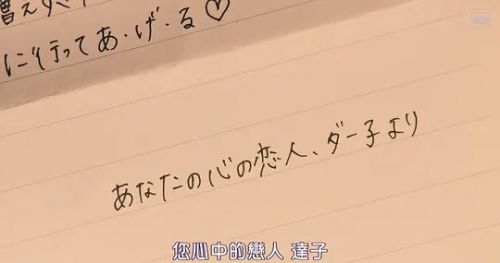 に行ってあ・げ・る♡
あなたの心の恋人、ダー子より
您心中的戀人 達子